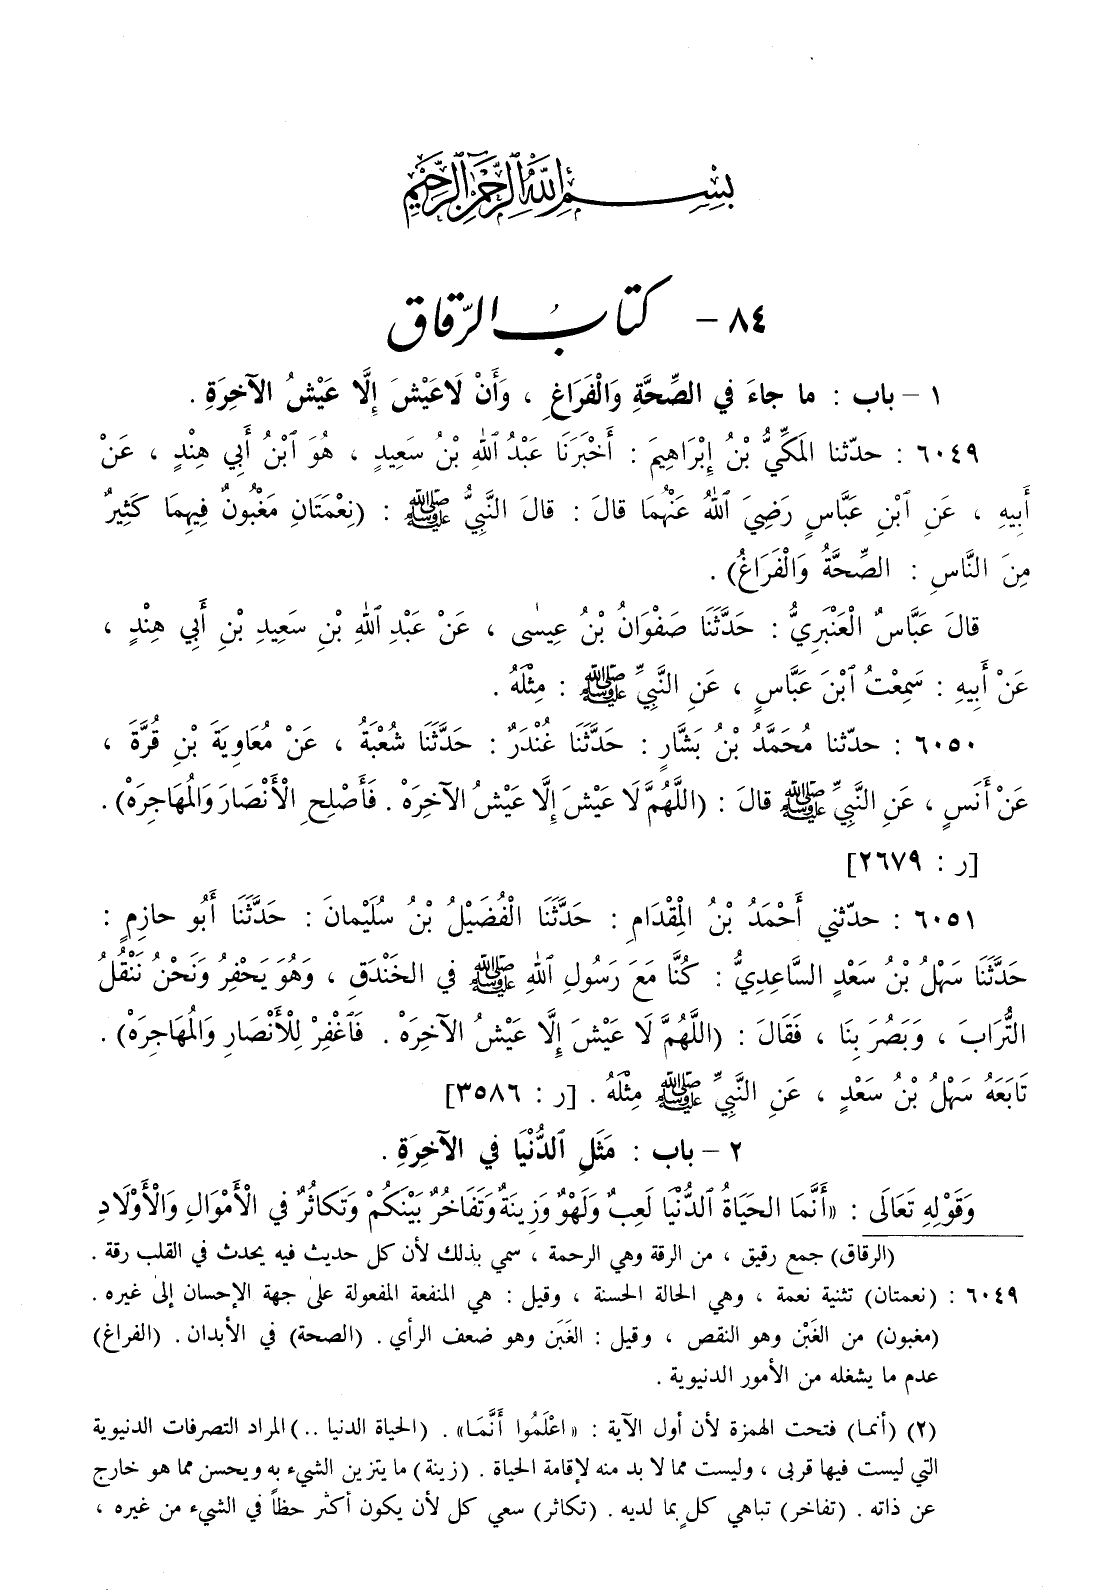 بِسْمِ اللَّهِ الرَّحْمَنِ الرَّحِيمِ
٨٤ - كتابُ الرِّقاق
١ - باب : ما جاءَ في الصِّحَّةِ وَالْفَرَاغِ ، وَأَنْ لَاعَيْشَ إِلَّا عَيْشُ الآخِرَةِ .
٦٠٤٩ : حدّثنا المَكِّيُّ بْنُ إِبْرَاهِيمَ : أَخْبَرَنَا عَبْدُ ٱللهِ بْنُ سَعِيدٍ ، هُوَ ٱبْنُ أَبِي هِنْدٍ ، عَنْ
أَبِيهِ ، عَنِ ٱبْنِ عَبَّاسٍ رَضِيَ ٱللهُ عَنْهُمَا قالَ : قالَ النَّبِيُّ ﷺ : (نِعْمَتَانِ مَغْبُونٌ فِيهِمَا كَثِيرٌ
مِنَ النَّاسِ : الصِّحَّةُ وَالْفَرَاغُ) .
قالَ عَبَّاسٌ الْعَنْبَرِيُّ : حَدَّثَنَا صَفْوَانُ بْنُ عِيسٰى ، عَنْ عَبْدِ ٱللهِ بْنِ سَعِيدِ بْنِ أَبِي هِنْدٍ ،
عَنْ أَبِيهِ : سَمِعْتُ ٱبْنَ عَبَّاسٍ ، عَنِ النَّبِيِّ ﷺ : مِثْلَهُ .
٦٠٥٠ : حدّثنا مُحَمَّدُ بْنُ بَشَّارٍ : حَدَّثَنَا غُنْدَرٌ : حَدَّثَنَا شُعْبَةُ ، عَنْ مُعَاوِيَةَ بْنِ قُرَّةَ ،
عَنْ أَنَسٍ ، عَنِ النَّبِيِّ ﷺ قالَ : (اللَّهُمَّ لَا عَيْشَ إِلَّا عَيْشُ الآخِرَهْ . فَأَصْلِحِ الْأَنْصَارَ وَالْمُهَاجِرَهْ) .
[ر : ٢٦٧٩]
٦٠٥١ : حدّثني أَحْمَدُ بْنُ الْمِقْدَامِ : حَدَّثَنَا الْفُضَيْلُ بْنُ سُلَيْمانَ : حَدَّثَنَا أَبُو حازِمٍ :
حَدَّثَنَا سَهْلُ بْنُ سَعْدٍ السَّاعِدِيُّ : كُنَّا مَعَ رَسُولِ ٱللهِ ﷺ في الخَنْدَقِ ، وَهُوَ يَحْفِرُ وَنَحْنُ نَنْقُلُ
التُّرَابَ ، وَبَصُرَ بِنَا ، فَقَالَ : (اللَّهُمَّ لَا عَيْشَ إِلَّا عَيْشُ الآخِرَهْ . فَٱغْفِرْ لِلْأَنْصَارِ وَالْمُهَاجِرَهْ) .
تَابَعَهُ سَهْلُ بْنُ سَعْدٍ ، عَنِ النَّبِيِّ ﷺ مِثْلَهُ . [ر : ٣٥٨٦]
٢ - باب : مَثَلِ ٱلدُّنْيَا في الآخِرَةِ .
وَقَوْلِهِ تَعَالَى : «أَنَّمَا الحَيَاةُ ٱلدُّنْيَا لَعِبٌ وَلَهْوٌ وَزِينَةٌ وَتَفَاخُرٌ بَيْنَكُمْ وَتَكاثُرٌ في الْأَمْوَالِ وَالْأَوْلَادِ
(الرقاق) جمع رقيق ، من الرقة وهي الرحمة ، سمي بذلك لأن كل حديث فيه يحدث في القلب رقة .
٦٠٤٩ : (نعمتان) تثنية نعمة ، وهي الحالة الحسنة ، وقيل : هي المنفعة المفعولة على جهة الإحسان إلى غيره .
(مغبون) من الغَبْن وهو النقص ، وقيل : الغَبَن وهو ضعف الرأي . (الصحة) في الأبدان . (الفراغ)
عدم ما يشغله من الأمور الدنيوية .
(٢) (أنما) فتحت الهمزة لأن أول الآية : «اعْلَمُوا أَنَّمَا» . (الحياة الدنيا ..) المراد التصرفات الدنيوية
التي ليست فيها قربى ، وليست مما لا بد منه لإقامة الحياة . (زينة) ما يتزين الشيء به ويحسن مما هو خارج
عن ذاته . (تفاخر) تباهي كلٍ بما لديه . (تكاثر) سعي كل لأن يكون أكثر حظاً في الشيء من غيره ،